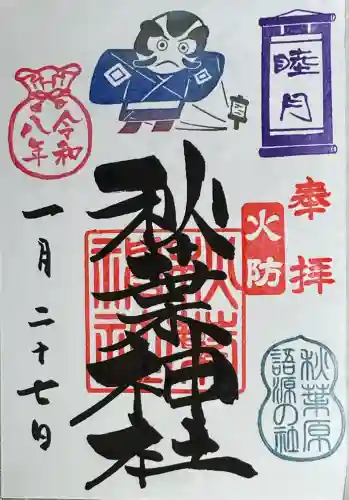 睦月
奉拝
火防
秋葉神社
秋葉神社
秋葉原
語源の社
令和
八年
一月二十七日